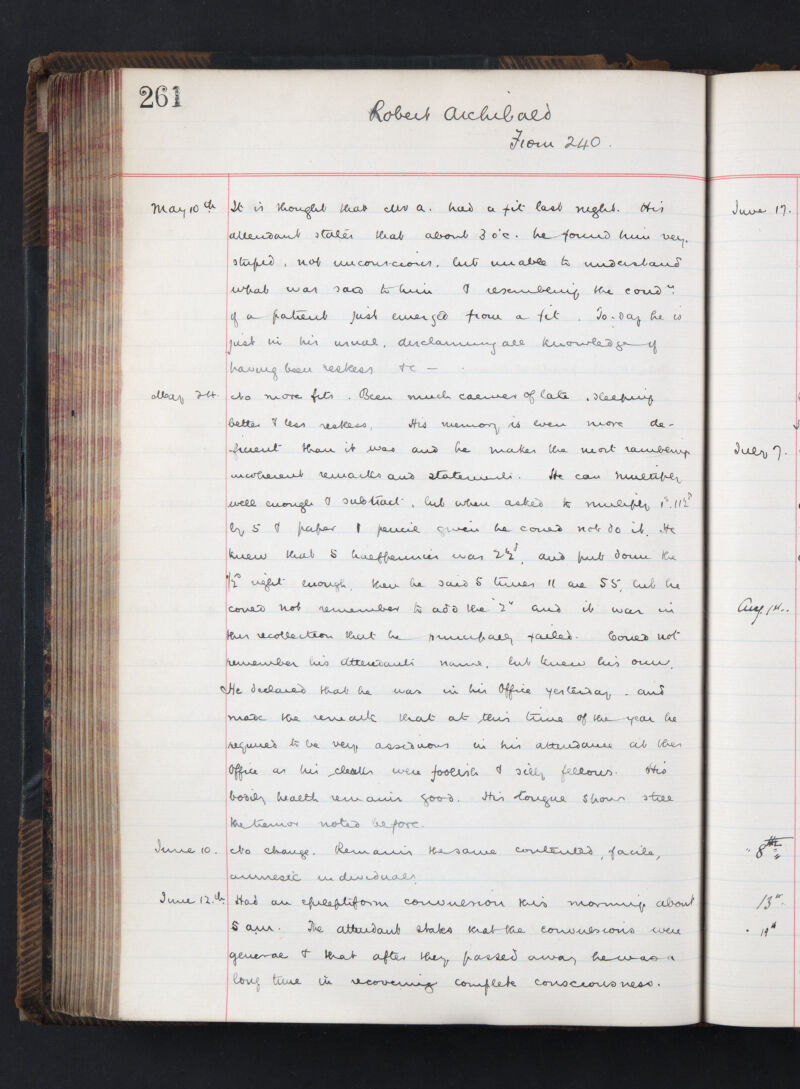 261
Robert Archibald
From 240.
May 10th It is thought that Mr A. had a fit last night. His
attendant states that about 3 o'c. he found him very
stupid, not unconscious, but unable to understand
what was said to him & resembling the condn.
of a patient just emerged from a fit. To-day he is
just in his usual, disclaiming all knowledge of
having been restless &c —
May 24. No more fits. Been much calmer of late, sleeping
better & less restless. His memory is even more de-
ficient than it was and he makes the most rambling
incoherent remarks and statements. He can multiply
well enough & subtract, but when asked to multiply 1s. 11½d
by 5 & paper & pencil given he could not do it. He
knew that 5 halfpennies was 2½d, and put down the
½d right enough, then he said 5 times 11 are 55, but he
could not remember to add the "2" and it was in
this recollection that he principally failed. Could not
remember his attendants name, but knew his own.
He declared that he was in his Office yesterday - and
made the remark that at this time of the year he
required to be very assiduous in his attendance at the
Office as his clerks were foolish & silly fellows. His
bodily health remains good. His tongue shows still
the tremor noted before.
June 10. No change. Remains the same contented, facile,
amnesic individual.
June 12.th Had an epileptiform convulsion this morning about
5 am. The attendant states that the convulsions were
general & that after they passed away he was a
long time in recovering complete consciousness.
June 17.
July 7.
Aug 1st..
" 8th
13th
" 19th